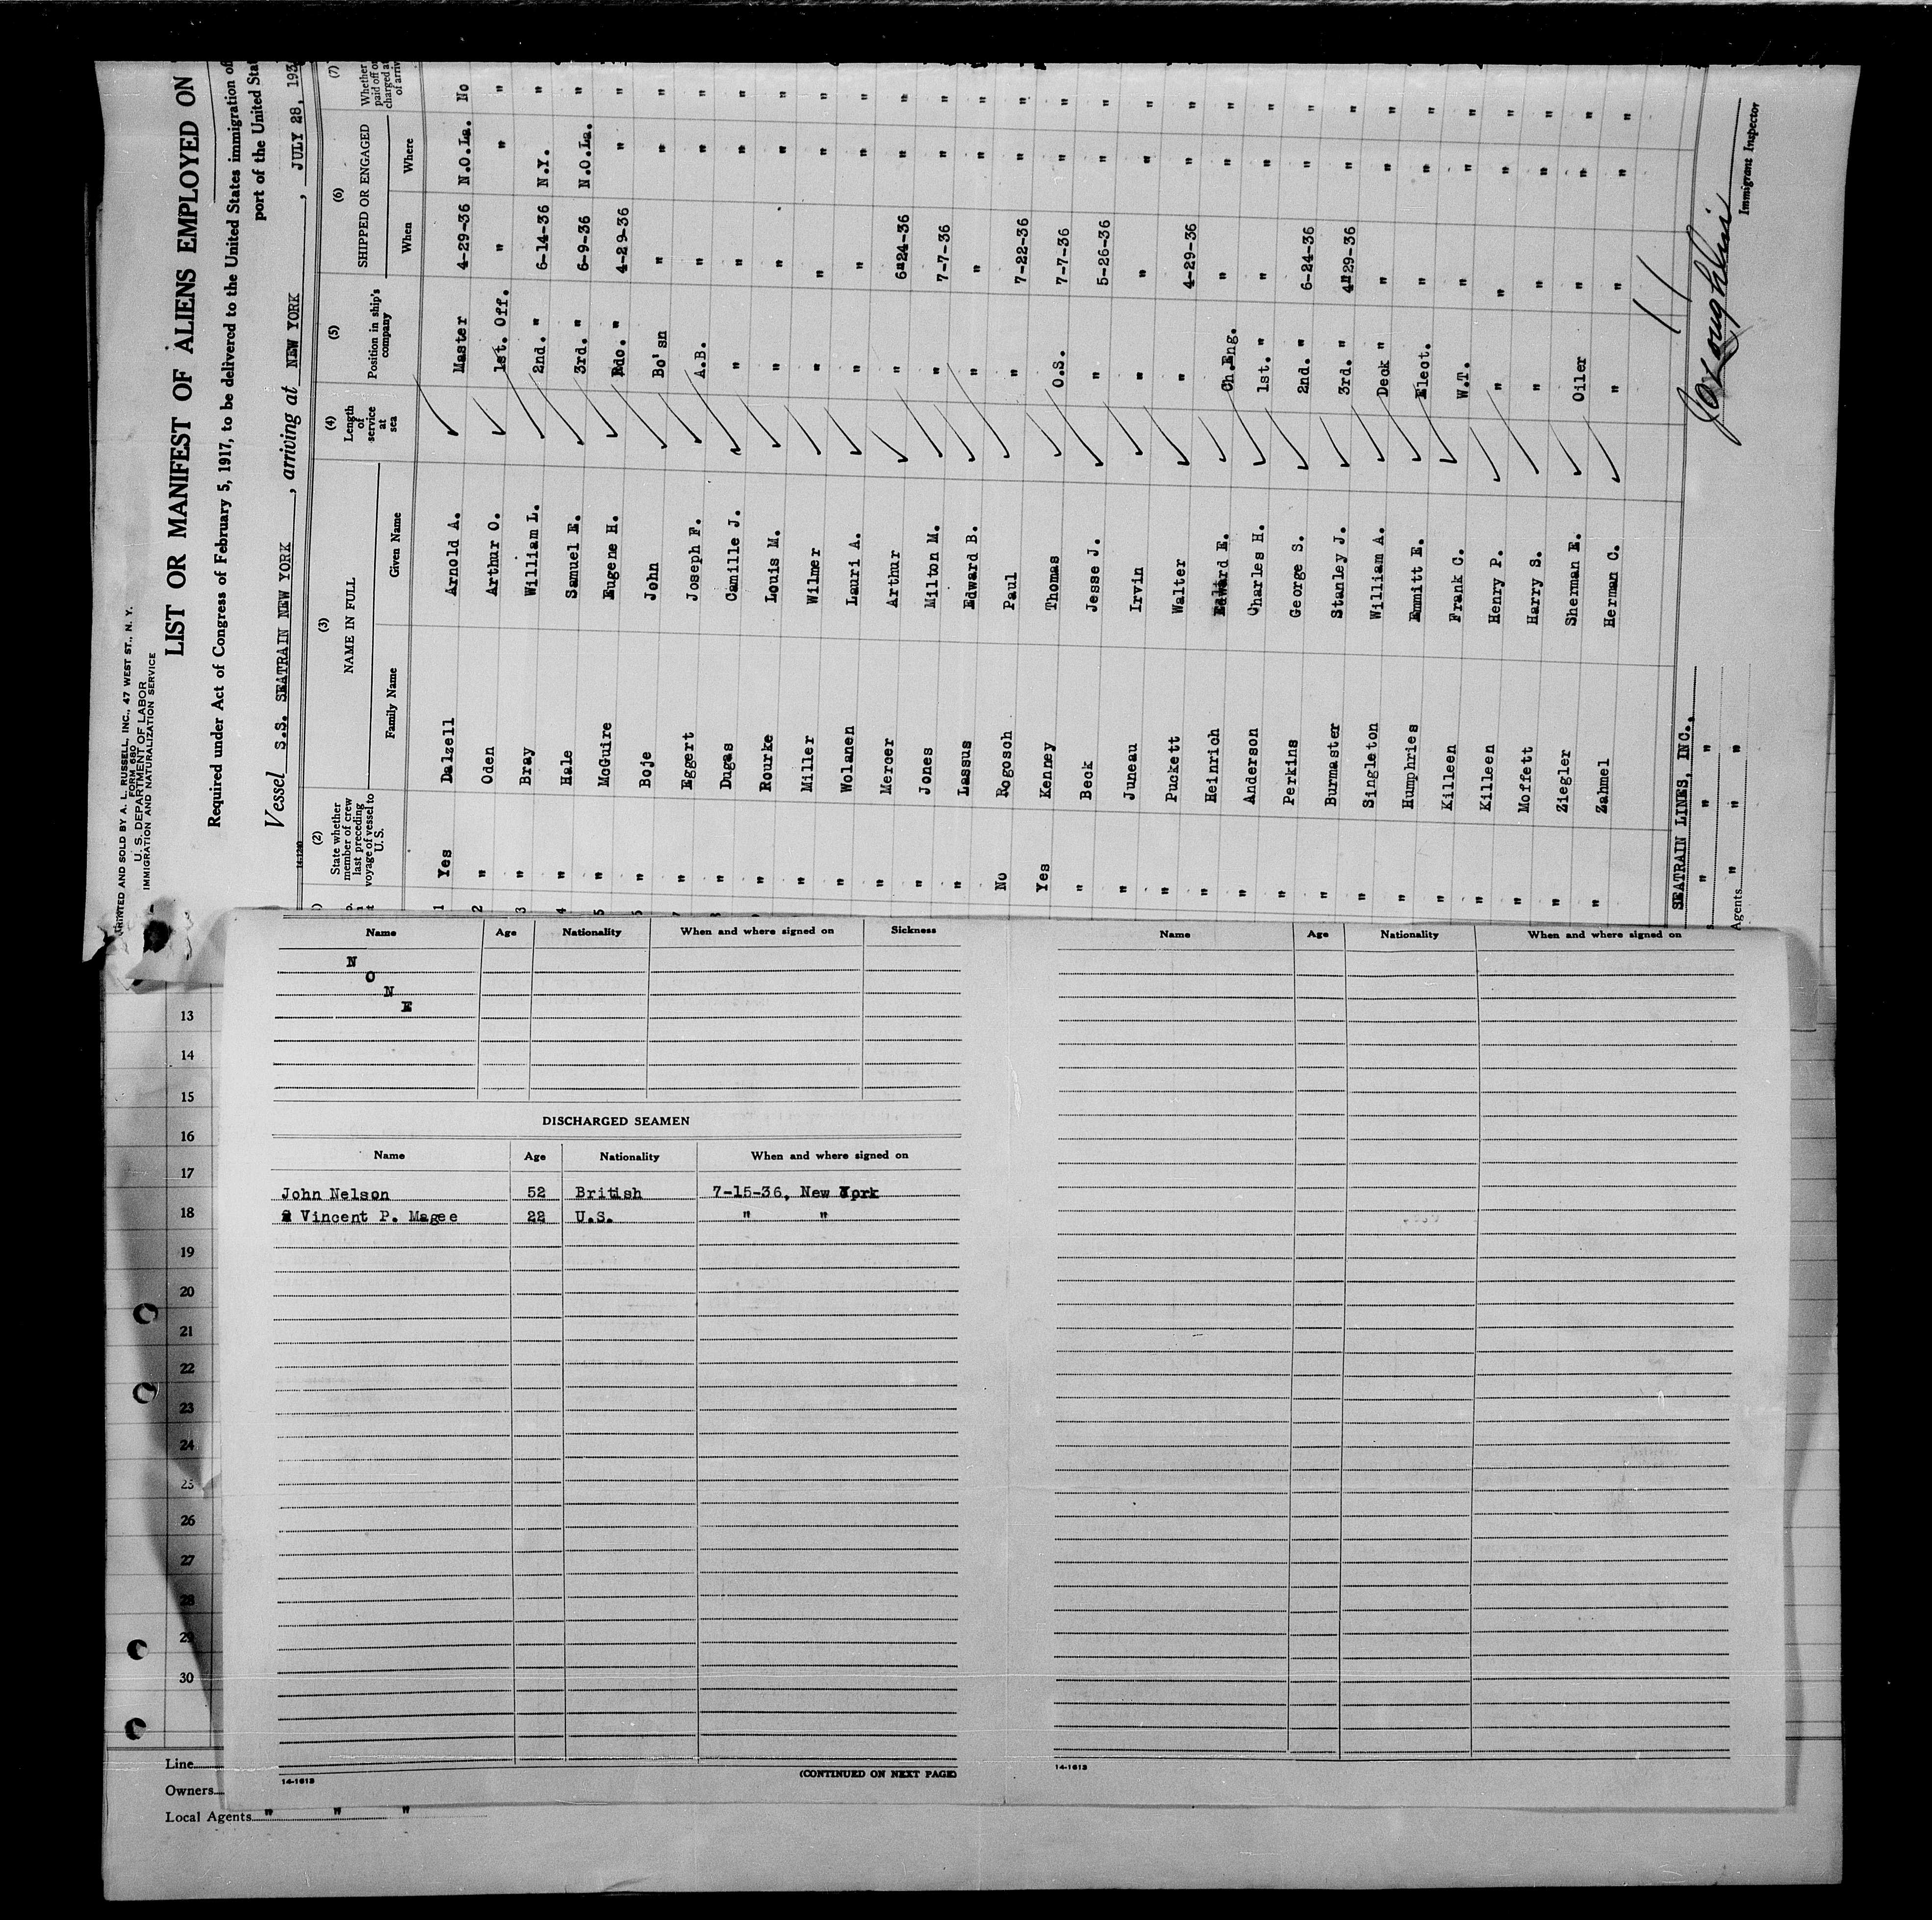 PRINTED AND SOLD BY A. L. RUSSELL, INC., 47 WEST ST., N. Y.
FORM 680
U. S. DEPARTMENT OF LABOR
IMMIGRATION AND NATURALIZATION SERVICE
LIST OR MANIFEST OF ALIENS EMPLOYED ON
Required under Act of Congress of February 5, 1917, to be delivered to the United States immigration of
port of the United Stat
Vessel S.S. SEATRAIN NEW YORK, arriving at NEW YORK, JULY 28, 193
14-1240
(2) (3) (4) (5) (6) (7)
State whether member of crew last preceding voyage of vessel to U.S. NAME IN FULL Length of service at sea Position in ship's company SHIPPED OR ENGAGED Whether paid off or charged at of arriv
Family Name Given Name When Where
1 Yes Dalzell Arnold A. Master 4-29-36 N.O.La. No
2 " Oden Arthur O. 1st. Off. " " "
3 " Bray William L. 2nd. " 6-14-36 N.Y. "
4 " Hale Samuel E. 3rd. " 6-9-36 N.O.La. "
5 " McGuire Eugene H. Rdo. " 4-29-36 " "
" Boje John Bo'sn " " "
" Eggert Joseph F. A.B. " " "
" Dugas Camille J. " " " "
" Rourke Louis M. " " " "
" Miller Wilmer " " " "
" Wolanen Lauri A. " " " "
" Mercer Arthur " 6-24-36 " "
" Jones Milton M. " 7-7-36 " "
" Lassus Edward B. " " " "
No Rogosch Paul " 7-22-36 " "
Yes Kenney Thomas O.S. 7-7-36 " "
" Beck Jesse J. " 5-26-36 " "
" Juneau Irvin " " " "
" Puckett Walter " 4-29-36 " "
" Heinrich Edward E. Ch.Eng. " " "
" Anderson Charles H. 1st. " " " "
" Perkins George S. 2nd. " 6-24-36 " "
" Burmaster Stanley J. 3rd. " 4-29-36 " "
" Singleton William A. Deck " " " "
" Humphries Emmitt E. Elect. " " "
" Killeen Frank C. W.T. " " "
" Killeen Henry P. " " " "
" Moffett Harry S. " " " "
" Ziegler Sherman E. Oiler " " "
" Zahmel Herman C. " " " "
SEATRAIN LINES, INC.,
" " "
Agents " " "
Immigrant Inspector
Name Age Nationality When and where signed on Sickness
N
O
N
E
DISCHARGED SEAMEN
Name Age Nationality When and where signed on
John Nelson 52 British 7-15-36, New York
Vincent P. Magee 22 U.S. " "
(CONTINUED ON NEXT PAGE)
14-1613
Name Age Nationality When and where signed on
14-1613
13
14
15
16
17
18
19
20
21
22
23
24
25
26
27
28
29
30
Line
Owners
Local Agents " " "